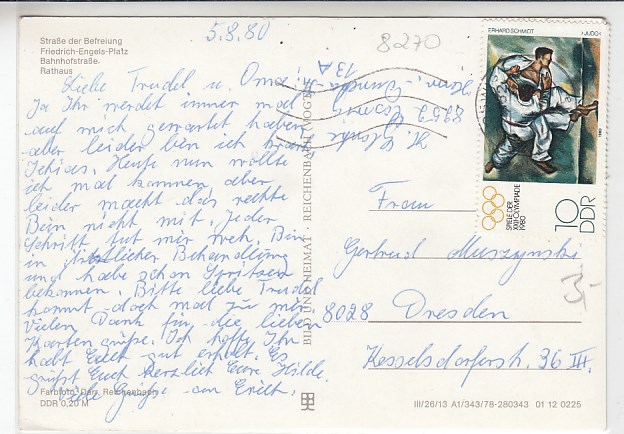 5.8.80
8270
Straße der Befreiung
Friedrich-Engels-Platz
Bahnhofstraße.
Rathaus
Liebe Trudel u. Oma,
Ja Ihr werdet immer mal
auf mich gewartet haben
aber leider bin ich krank
Ischias. Heute nun wollte
ich mal kommen, aber
leider macht das rechte
Bein nicht mit. Jeder
Schritt tut mir weh. Bin
in ärztlicher Behandlung
und habe schon Spritzen
bekommen. Bitte liebe Trudel
kommt doch mal zu mir
Vielen Dank für die lieben
Kartengrüße. Ich hoffe Ihr
habt Euch gut erholt. Es
grüßt Euch herzlich Eure Hilde.
Viele Grüße an Erich.
Farbfoto: Darr, Reichenbach
DDR 0,20 M
BILD UND HEIMAT · REICHENBACH (VOGTL)
H.
8252
13 A
ERHARD SCHMIDT ›JUDO‹
1980
SPIELE DER
XXII. OLYMPIADE
1980
10
DDR
3,-
Frau
Gertrud Muszynski
8028 Dresden
Kesselsdorferstr. 36 III.
III/26/13 A1/343/78-280343 01 12 0225